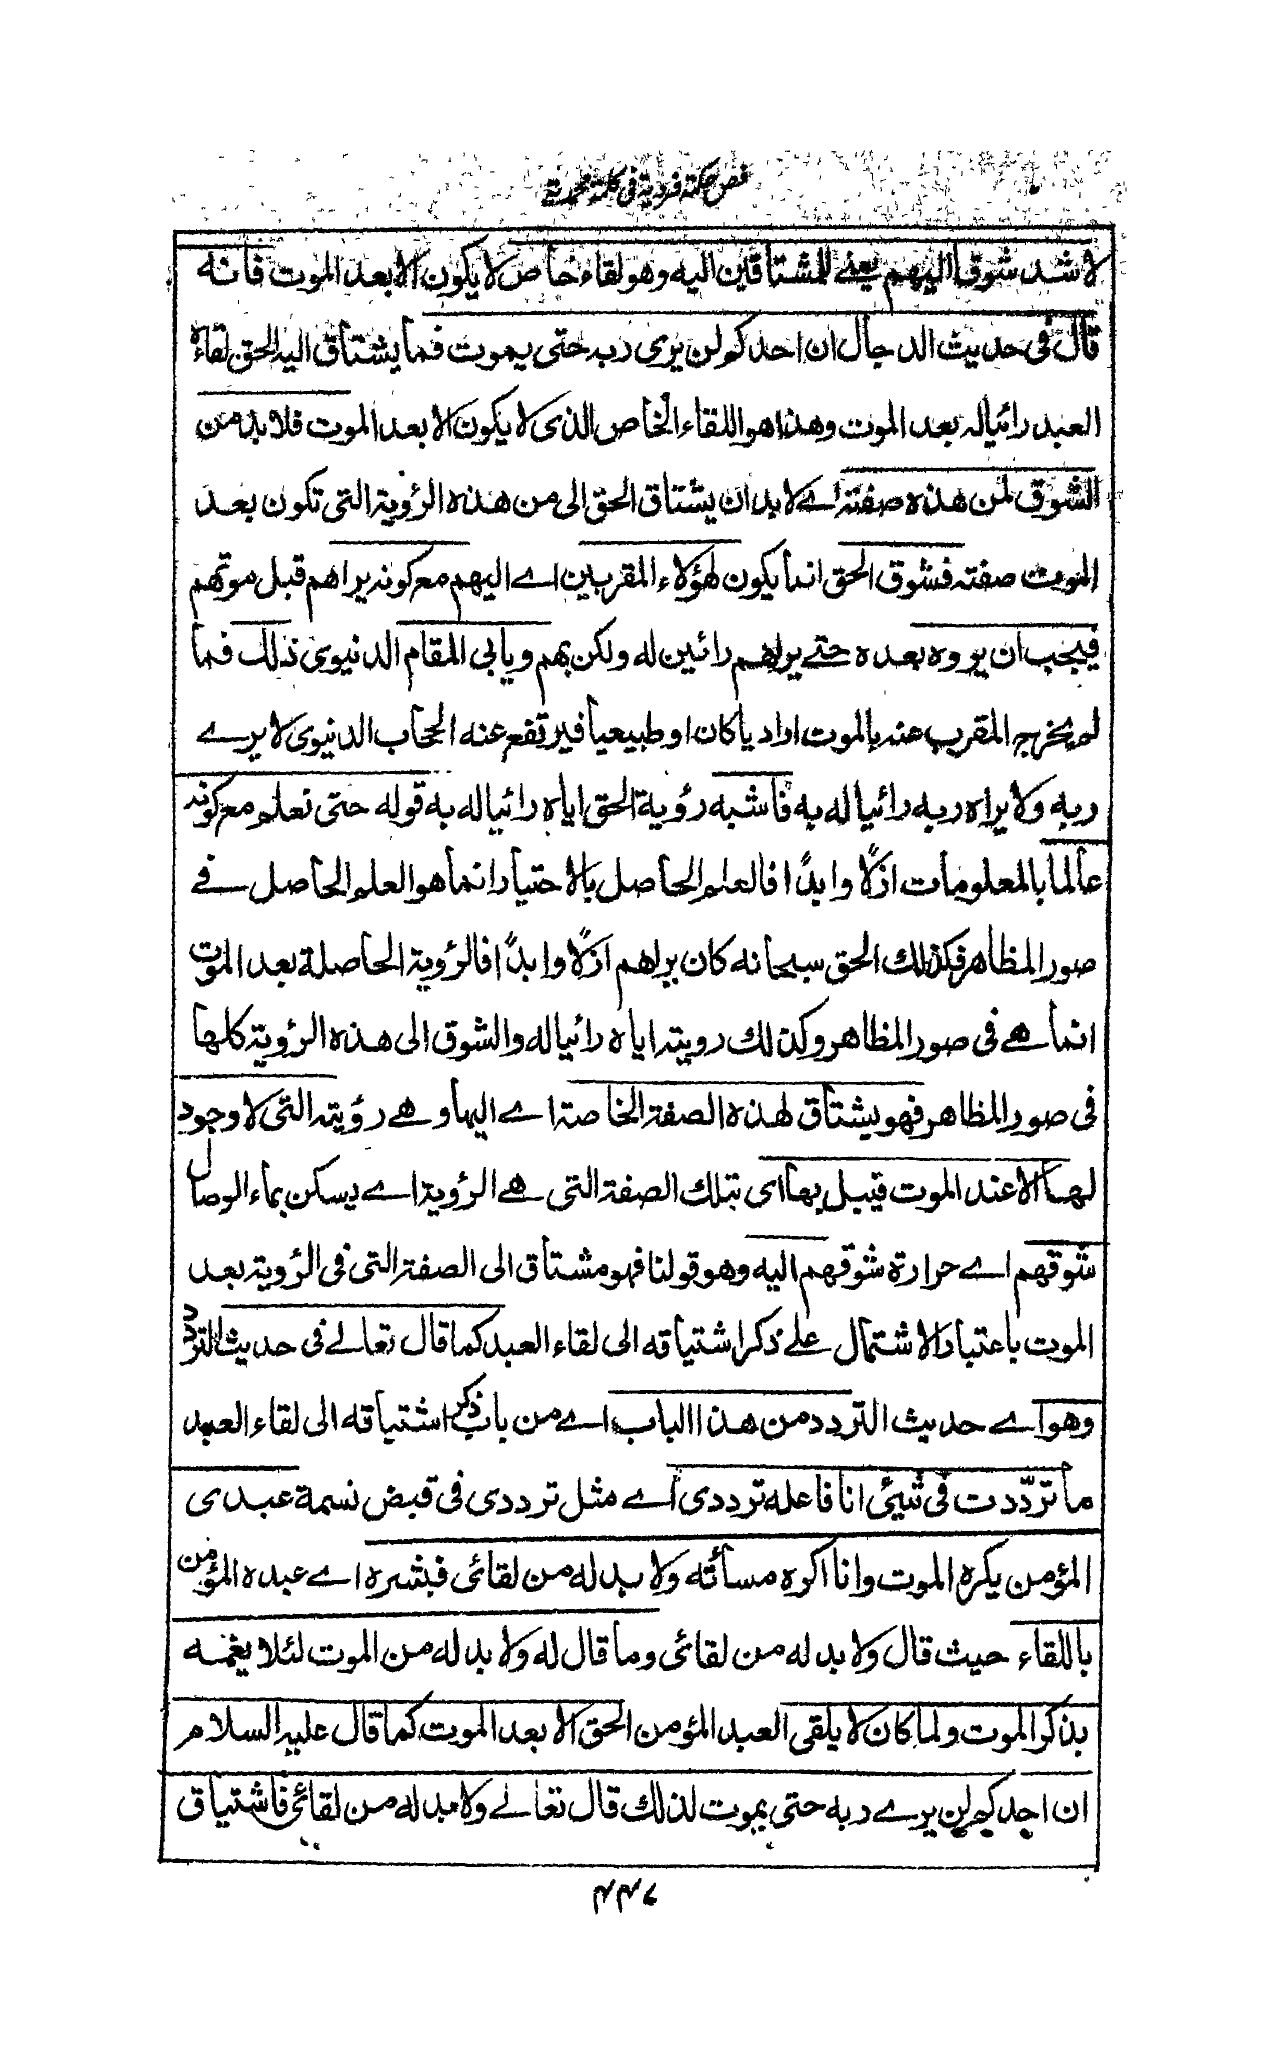 فص حكمة فردية في كلمة محمدية
لاشد شوقا اليهم يعنے للمشتاقين اليه وهو لقاء خاص لا يكون الا بعد الموت فانه
قال في حديث الدجال ان احدكم لن يرى ربه حتى يموت فما يشتاق اليه الحق لقاءه
العبد رائيا له بعد الموت وهذا هو اللقاء الخاص الذى لا يكون الا بعد الموت فلا بد من
الشوق لمن هذه صفته اے لا بد ان يشتاق الحق الى من هذه الرؤية التى تكون بعد
الموت صفته فشوق الحق انما يكون لهؤلاء المقربين اے اليهم مع كونه يراهم قبل موتهم
فيجب ان يروه بعده حتے يراهم رائين له ولكن بهم ويابى المقام الدنيوى ذلك فما
لم يخرج المقرب عنه بالموت اراديا كان او طبيعيا فيرتفع عنه الحجاب الدنيوى لا يرے
ربه ولا يراه ربه رائيا له به فاشبه رؤية الحق اياه رائيا له به قوله حتى نعلم مع كونه
عالما بالمعلومات ازلًا وابدًا فالعلم الحاصل بالاختيار انما هو العلم الحاصل فے
صور المظاهر فكذلك الحق سبحانه كان يراهم ازلًا وابدًا فالرؤية الحاصلة بعد الموت
انما هے فى صور المظاهر وكذلك رويته اياه رائيا له والشوق الى هذه الرؤية كلها
فى صور المظاهر فهو يشتاق لهذه الصفة الخاصة اے اليها وهے رؤيته التى لا وجود
لها الا عند الموت فيبل بها اى بتلك الصفة التى هے الرؤية اے يسكن بماء الوصال
شوقهم اے حرارة شوقهم اليه وهو قولنا فهو مشتاق الى الصفة التى فى الرؤية بعد
الموت باعتبار الاشتمال علے ذكر اشتياقه الى لقاء العبد كما قال تعالے فى حديث التردد
وهو اے حديث التردد من هذا الباب اے من باب ذكر اشتياقه الى لقاء العبد
ما تردّدت فى شيئ انا فاعله ترددى اے مثل ترددى فى قبض نسمة عبدى
المؤمن يكره الموت وانا اكره مسائته ولا بد له من لقائى فبشره اے عبده المؤمن
باللقاء حيث قال ولا بد له من لقائى وما قال له ولا بد له من الموت لئلا يغمه
بذكر الموت ولما كان لا يلقى العبد المؤمن الحق الا بعد الموت كما قال عليه السلام
ان احدكم لن يرے ربه حتى يموت لذلك قال تعالے ولا بد له من لقائى فاشتياق